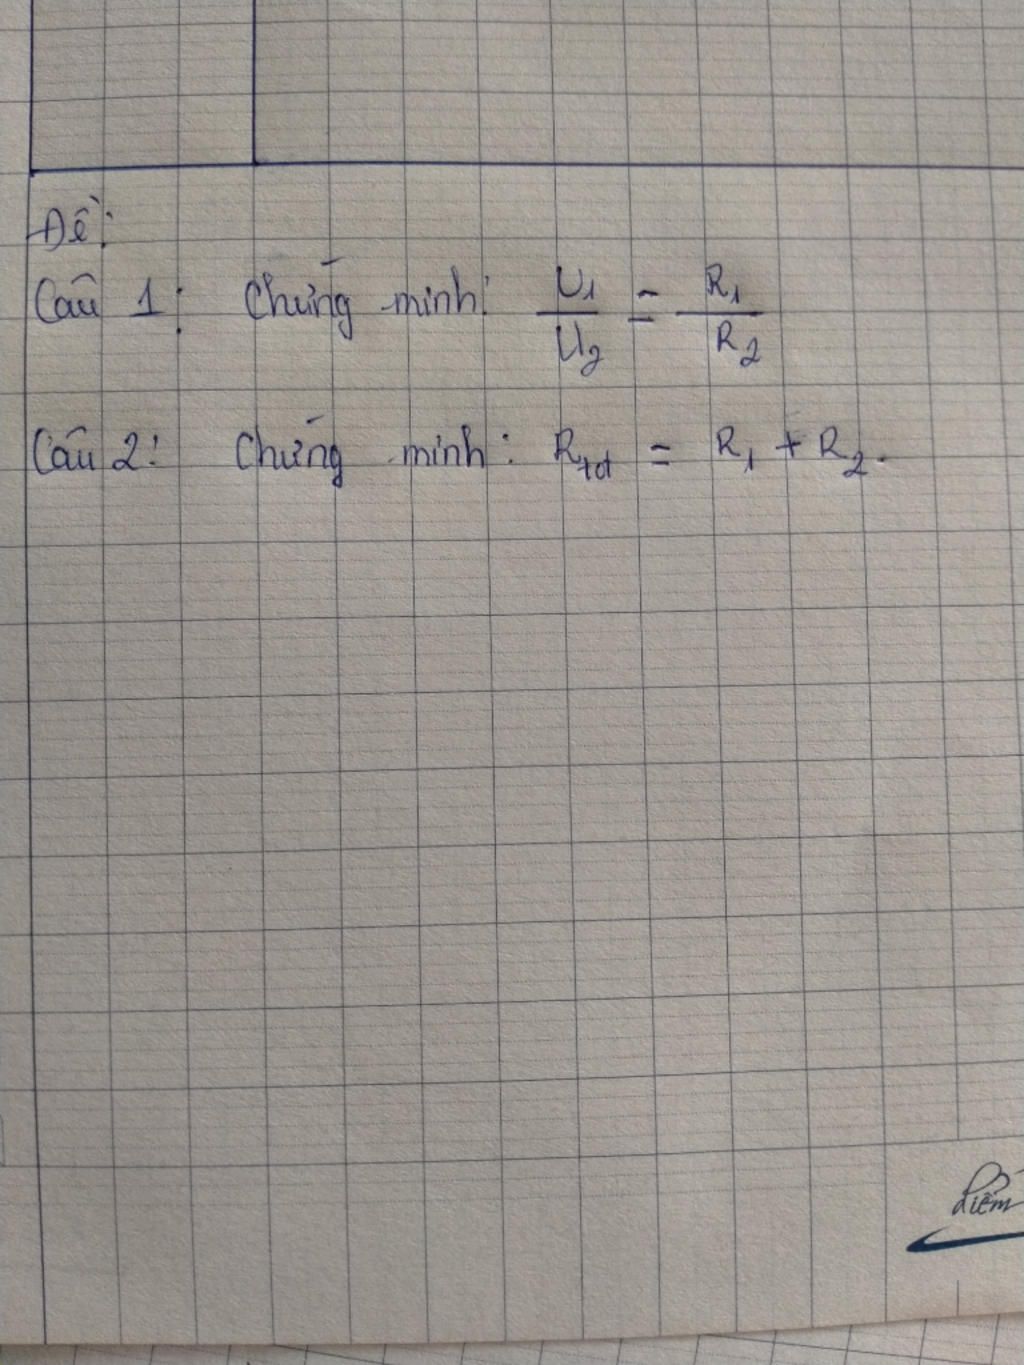 Đề:
Câu 1: Chứng minh: U₁/U₂ = R₁/R₂
Câu 2: Chứng minh: Rtđ = R₁ + R₂.
Điểm